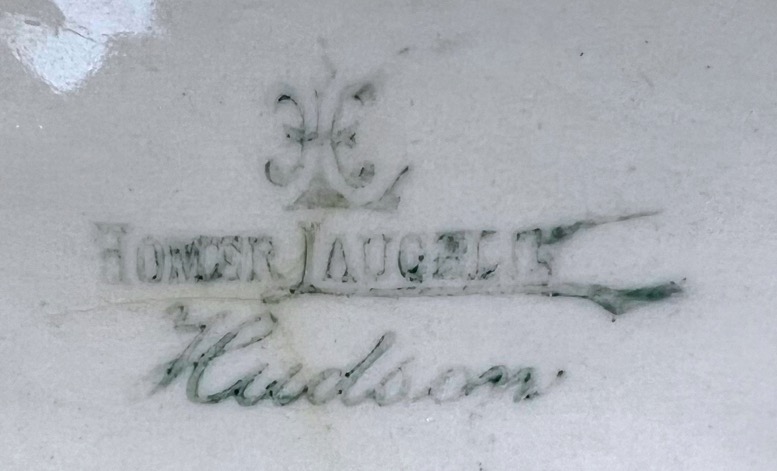 HL
HOMER LAUGHLIN
Hudson